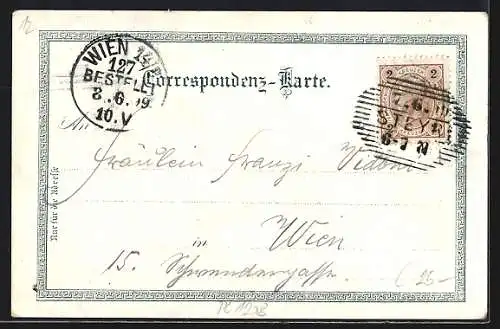 WIEN 14/2
127
BESTELLT
8.6.99
10.V
Correspondenz-Karte.
2 2
7.6.
STEYR
An
Fräulein Franzi
in Wien
15. Schwendergasse.
Nur für die Adresse
25-